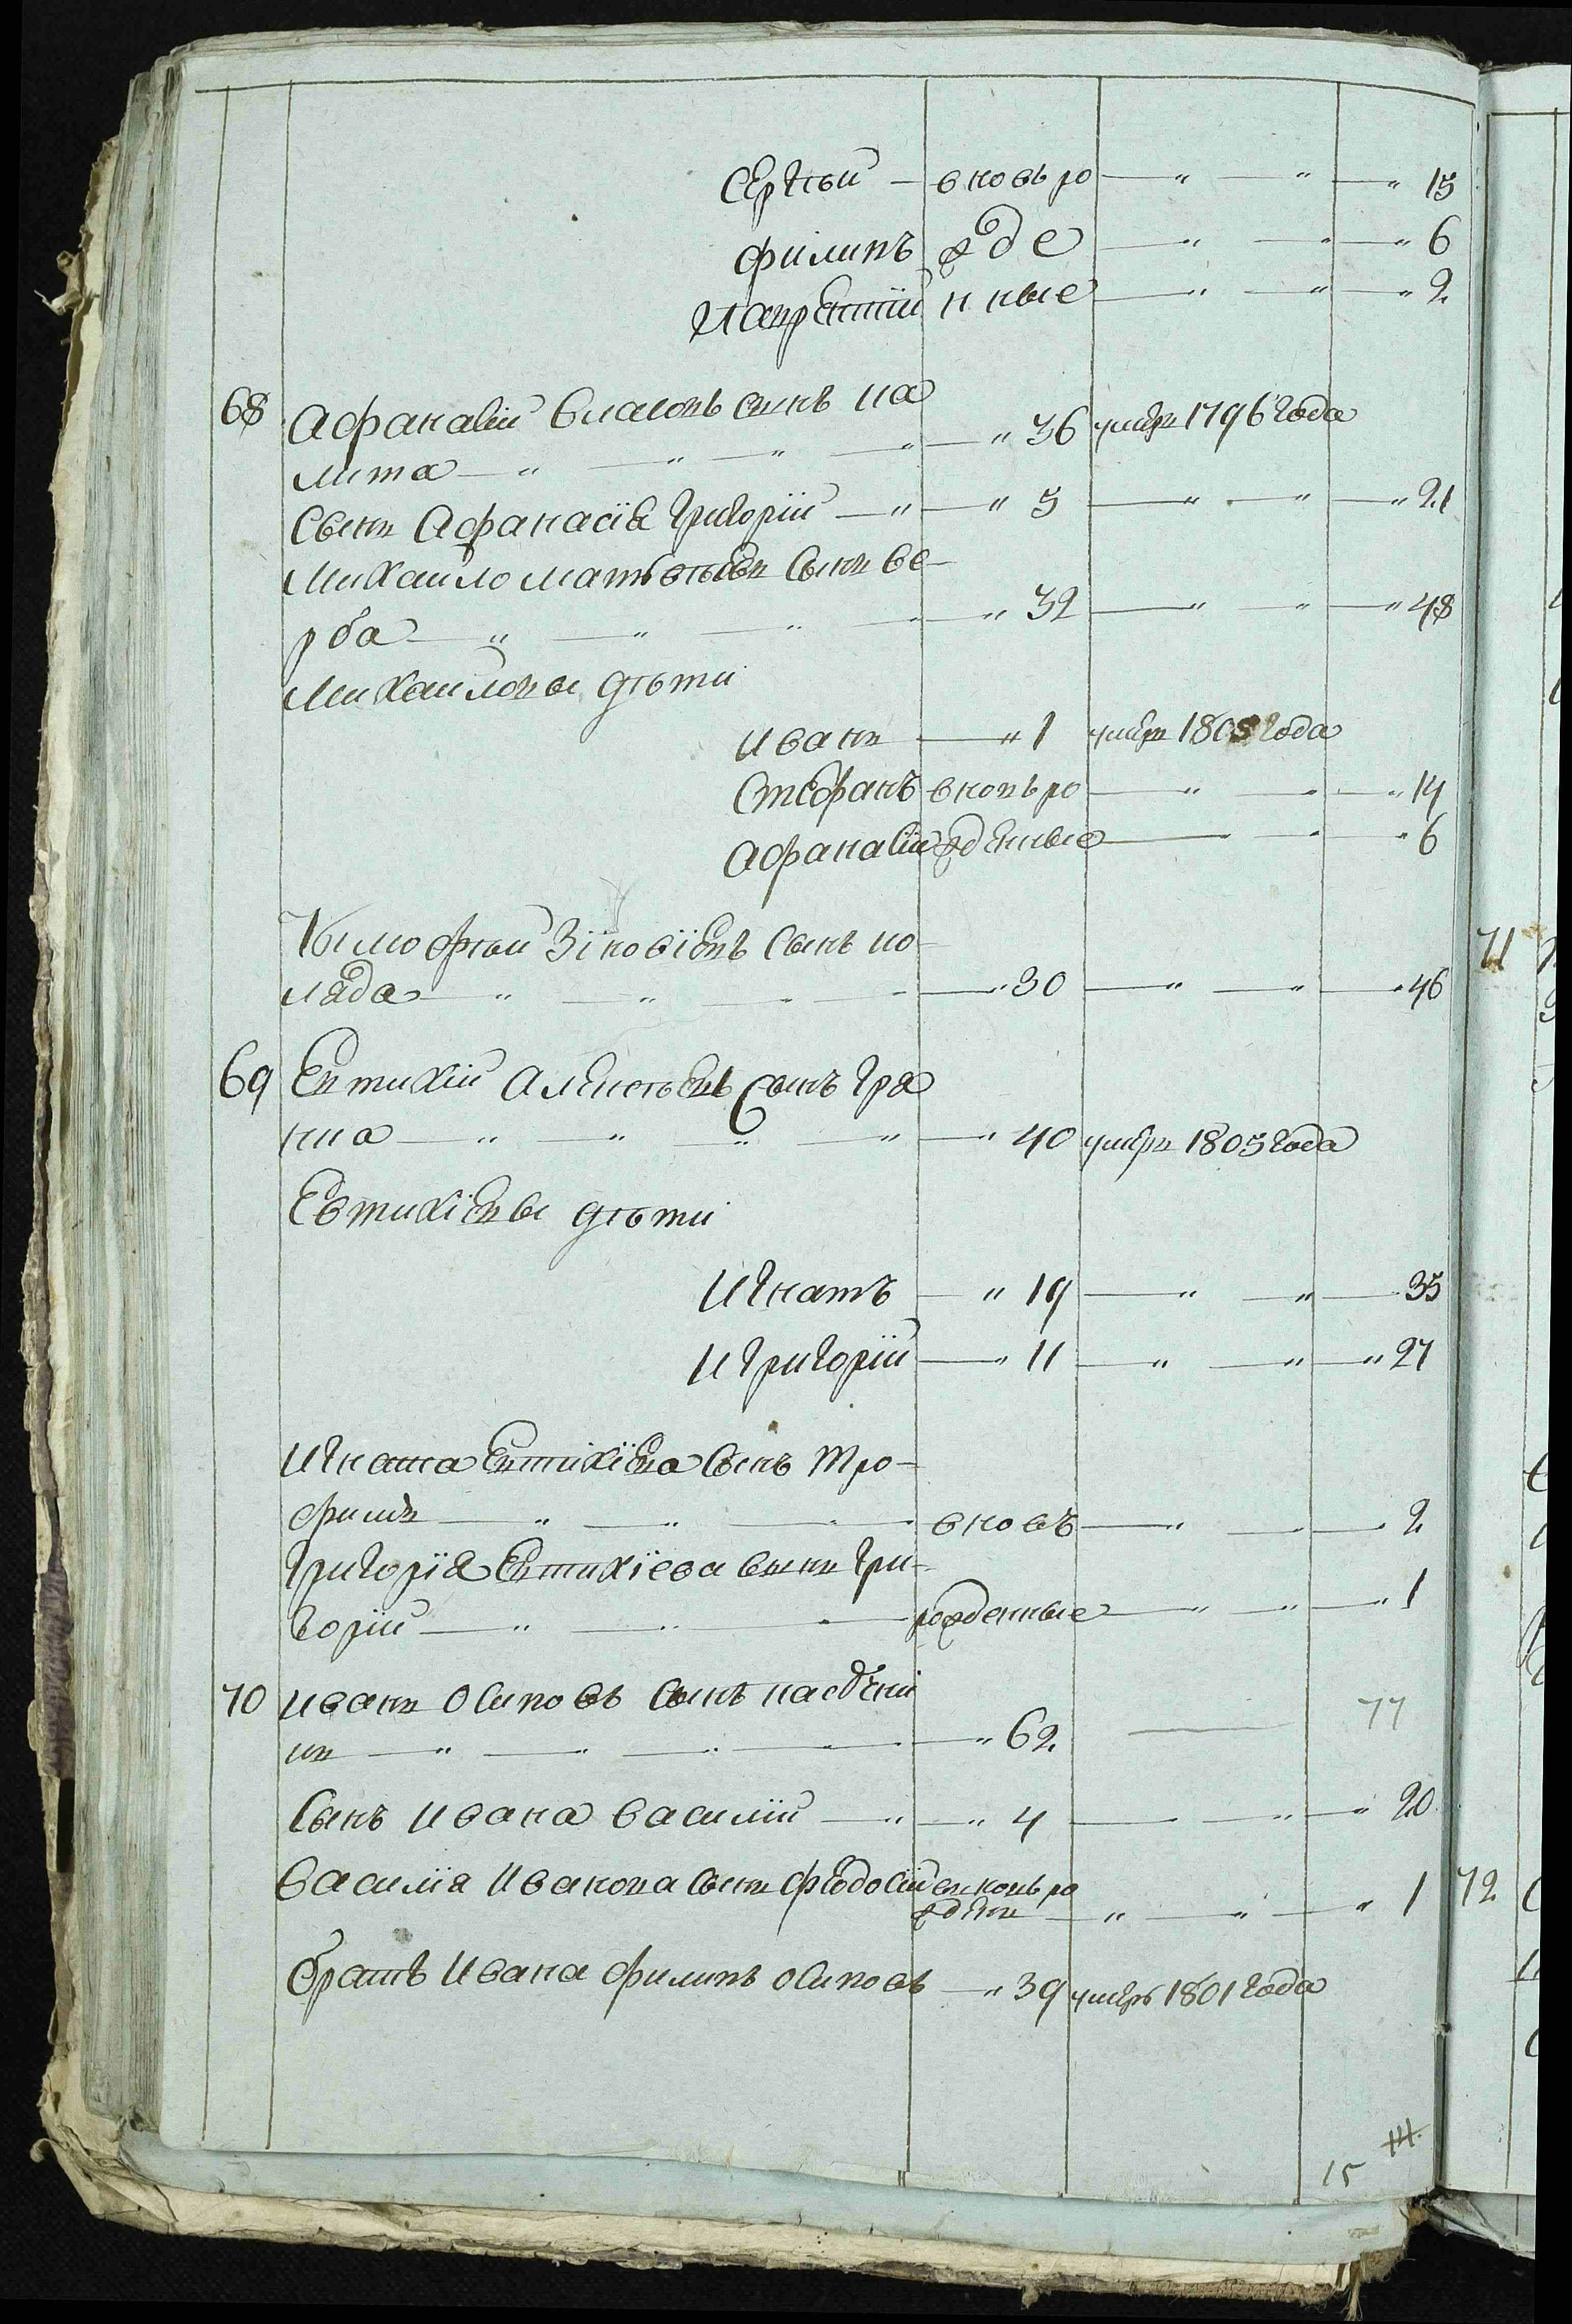 Сергѣй — вновь ро — 15
Филипъ жде — 6
Илаврентій нные — 2
68 Афанасій Власовъ сынъ ка
лита — 36 умеръ 1796 года
Сынъ Афанасія Григорій — 5 — 21
Михайло Матвѣевъ Сынъ ве-
рба — 32 — 48
Михайловы дѣти
Иванъ — 1 умеръ 1805 года
Стефанъ вновь ро — 14
Афанасій жденные — 6
Тымофѣй Зіновіевъ Сынъ ко-
ляда — 30 — 46
69 Евтихій Алексѣевъ Сынъ Гря
нка — 40 умеръ 1805 года
Евтихіевы дѣти
Игнатъ — 19 — 35
И Григорій — 11 — 27
Игната Евтихіева Сынъ Тро-
фимъ — вновь — 2
Григорія Евтихіева сынъ Гри-
горій — рожденные — 1
70 Иванъ Осиповъ Сынъ
— 62 — 77
Сынъ Ивана Василій — 4 — 20
Василія Иванова Сынъ Феодосій вновь ро
жденъ — 1
братъ Ивана Филипъ Осиповъ — 39 умеръ 1801 года
15
71
72